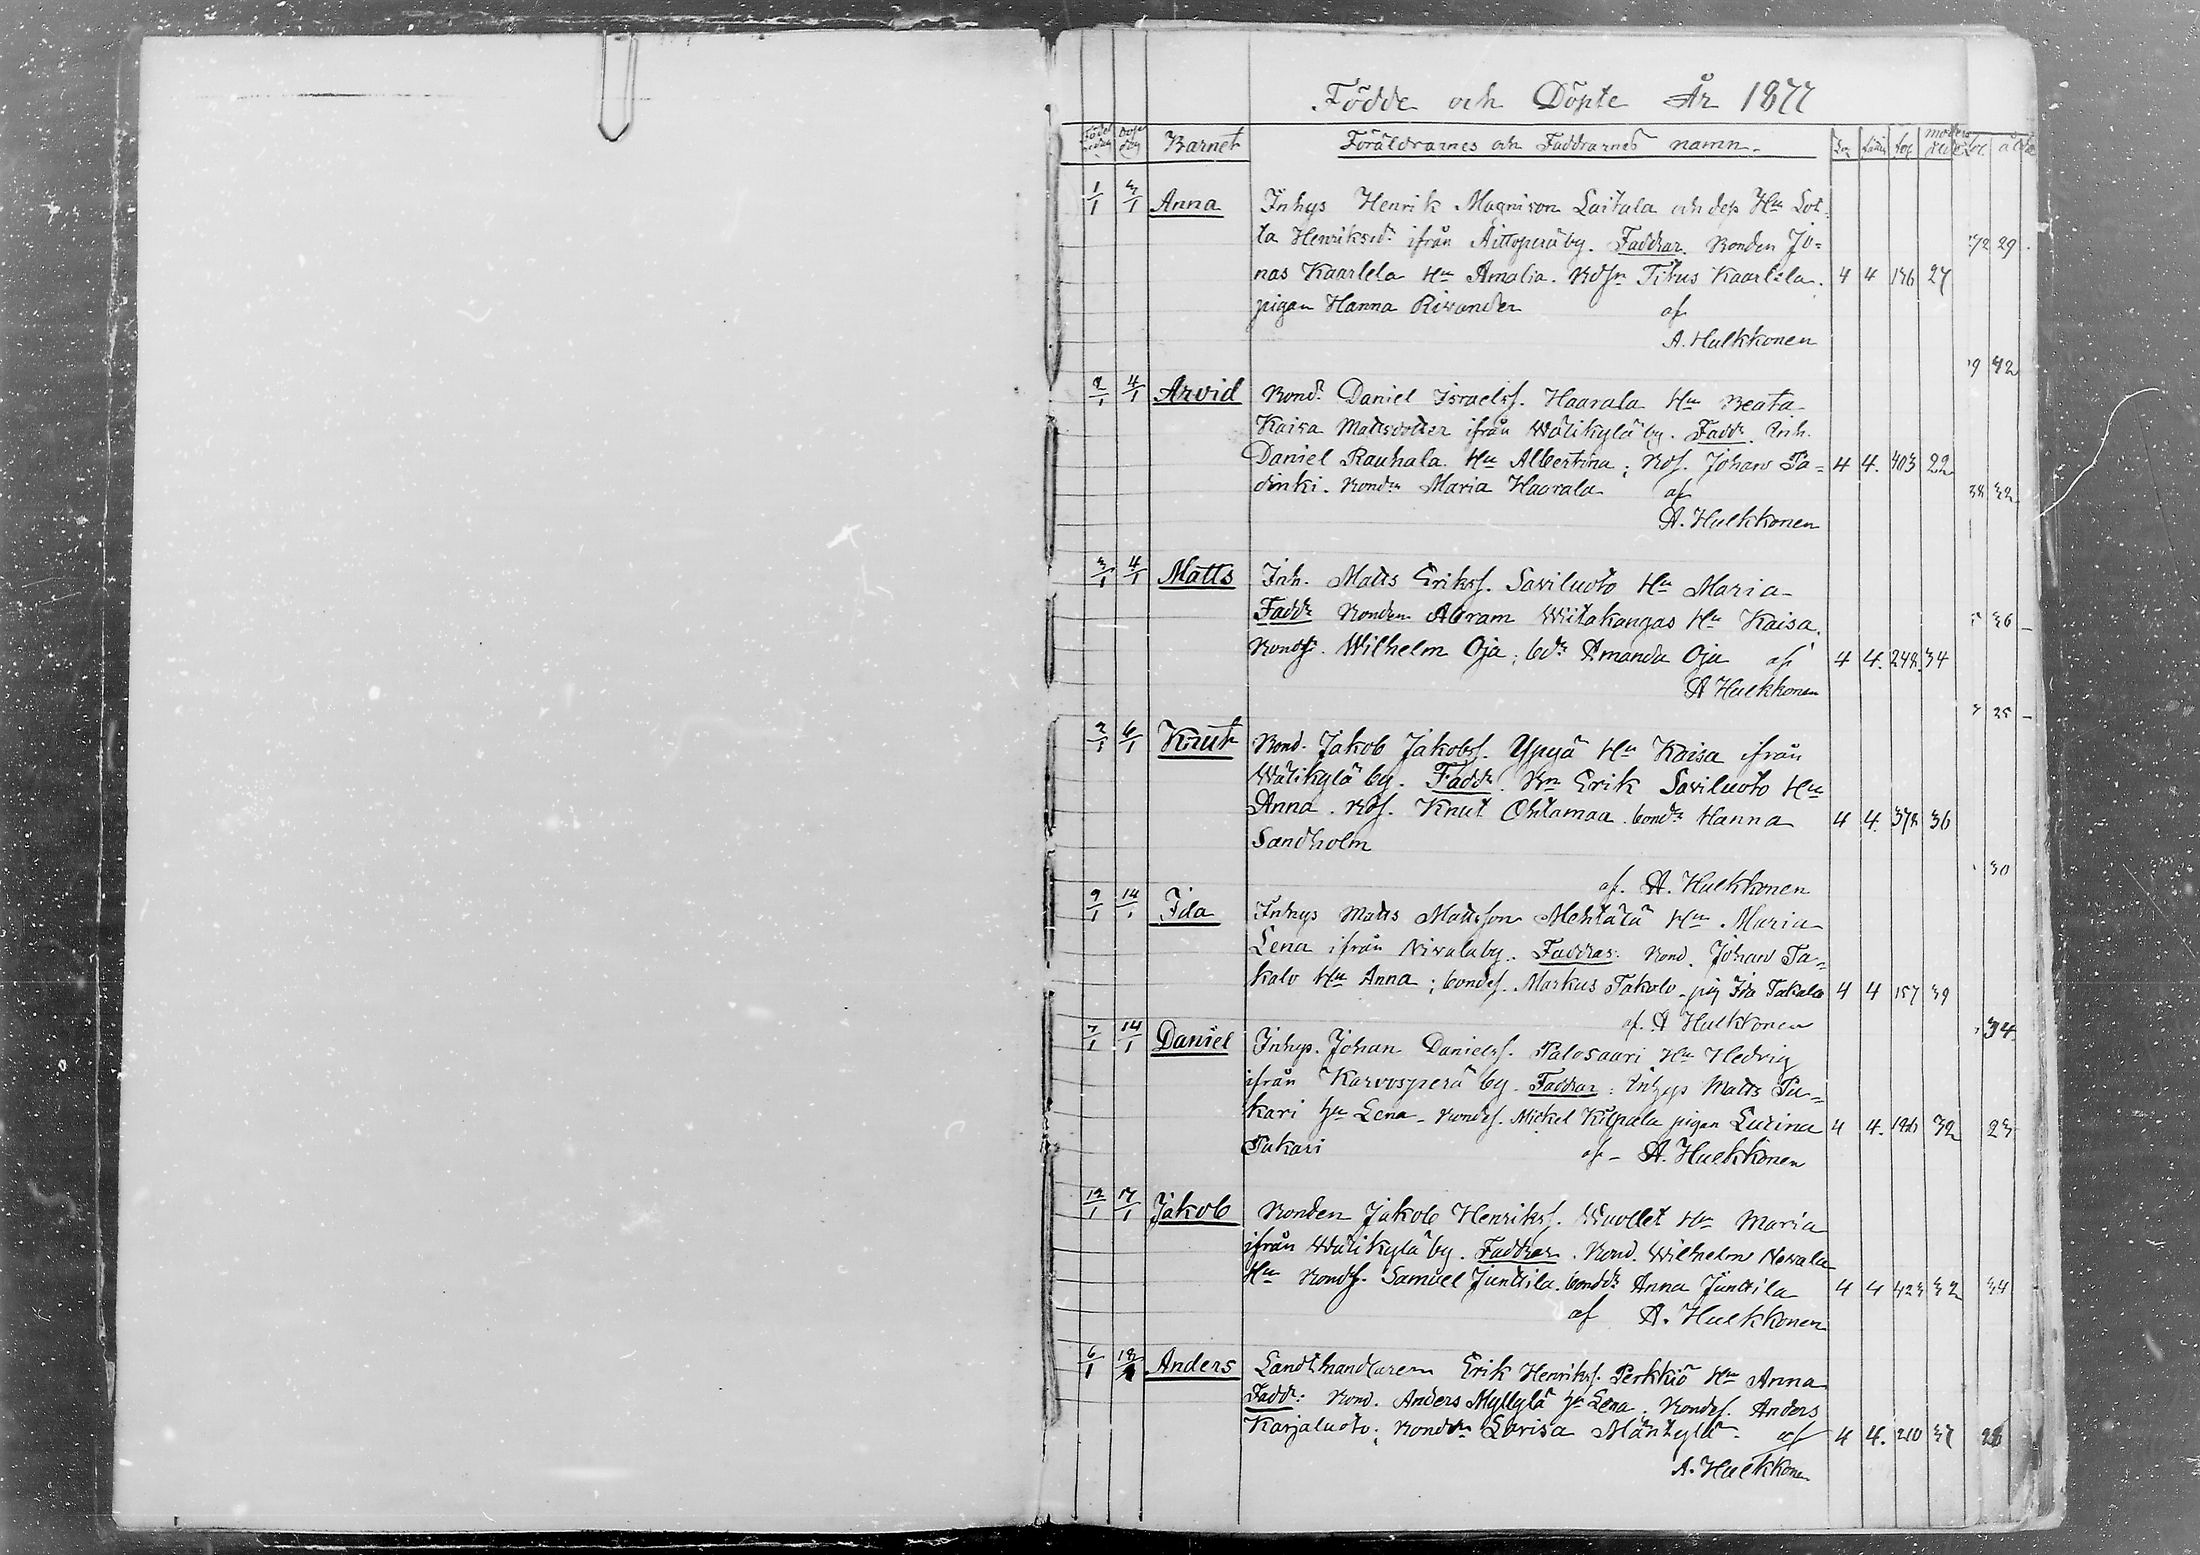 Födde och Döpte År 1877
Födel sedag Dop dag Barnet Föräldrarnes och Faddrarnes namn. moders
1/1 3/1 Anna Inhys Henrik Magnison Laitala och dess Hu Lot-
ta Henriksd. ifrån Aittoperä by. Faddrar. Bonden Jo= 29
nas Kaarlela Hu Amalia. Bdsn Titus Kaarlela. 4 4 136 27
pigan Hanna Rivander af
A. Hulkkonen
2/1 4/1 Arvid Bond. Daniel Israelss. Haarala Hu Beata
Kaisa Mattsdotter ifrån Wälikylä by. Fadd. Inh.
Daniel Rauhala. Hu Albertina; Bds. Johan Pa= 4 4. 403 22
dinki. Bondn Maria Haarala af 32
A. Hulkkonen
3/1 4/1 Matts Inh. Matts Erikss. Saviluoto Hu Maria
Fadd. Bonden Abram Wiitakangas Hu Kaisa. 36
Bonds. Wilhelm Oja; bdr Amanda Oja af 4 4. 248. 34
A Hulkkonen
2/1 6/1 Knut Bond. Jakob Jakobss. Ypyä Hu Kaisa ifrån 25
Wälikylä by. Fadd. Bn Erik Saviluoto Hu
Anna. Bds. Knut Ohtamaa. bondr Hanna 4 4. 378 36
Sandholm
af. A. Hulkkonen 30
9/1 14/1 Ida Inhys Matts Mattsson Mehtälä Hu Maria
Lena ifrån Nivala by. Faddrar: Bond. Johan Ta=
kalo Hu Anna; bondes. Markus Takalo. pig Ida Takalo 4 4 157 39
af. A Hulkkonen 34
7/1 14/1 Daniel Inhys. Johan Danielss. Palosaari Hu Hedvig
ifrån Karvosperä by. Faddrar: Inhys Matts Pu=
kari hu Lena. Bondes. Mickel Kilpala pigan Lucina 4 4. 32 23
Pukari af A. Hulkkonen
12/1 17/1 Jakob Bonden Jakob Henrikss. Wuollet Hu Maria
ifrån Wälikylä by. Faddrar. Bond. Wilhelm Nevala
Hu Bonds. Samuel Junttila. bonddr Anna Junttila 4 4 423 32 34
af A. Hulkkonen
6/1 18/1 Anders Landthandlaren Erik Henrikss. Perkkiö Hu Anna
Fadd: Bond. Anders Myllylä hu Lena. Bondes. Anders
Karjaluoto; Bonddn Lovisa Mäntylä af 4 4. 210 37
A. Hulkkonen